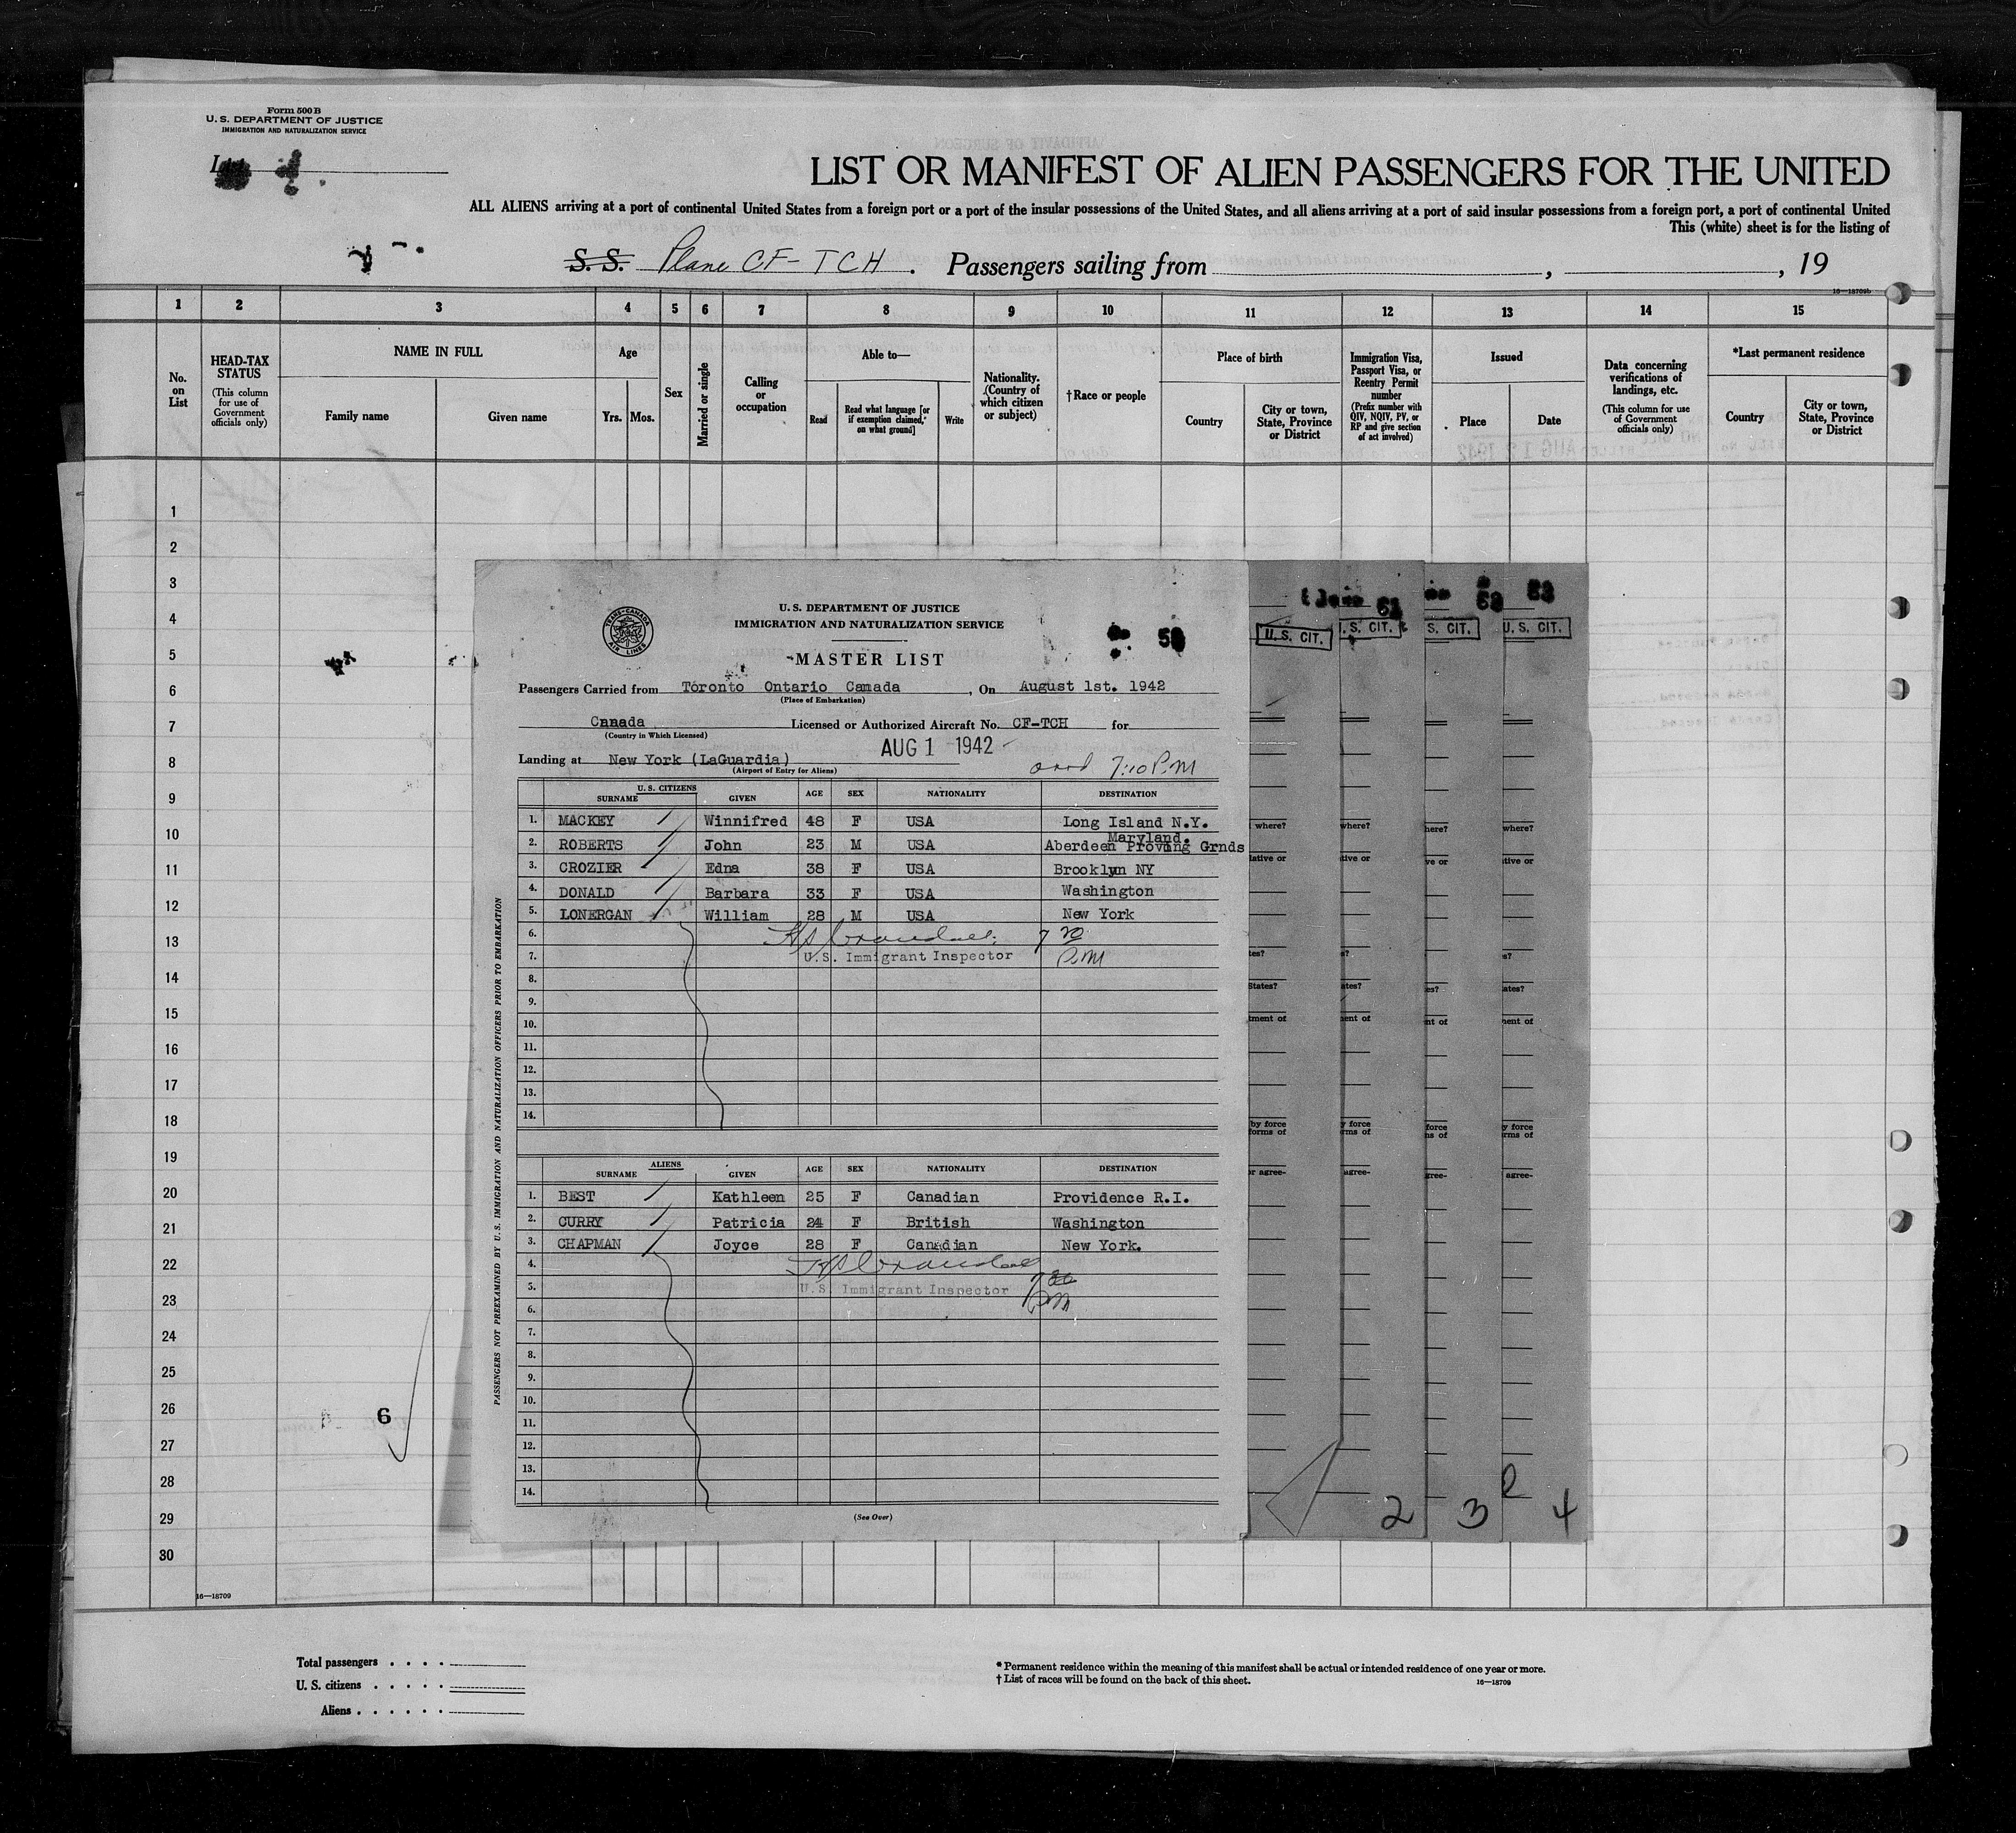 Form 500 B
U. S. DEPARTMENT OF JUSTICE
IMMIGRATION AND NATURALIZATION SERVICE
LIST OR MANIFEST OF ALIEN PASSENGERS FOR THE UNITED
ALL ALIENS arriving at a port of continental United States from a foreign port or a port of the insular possessions of the United States, and all aliens arriving at a port of said insular possessions from a foreign port, a port of continental United
This (white) sheet is for the listing of
S. S. Plane CF-TCH. Passengers sailing from , , 19
16—18709b
1 2 3 4 5 6 7 8 9 10 11 12 13 14 15
No. on List
HEAD-TAX STATUS
(This column for use of Government officials only)
NAME IN FULL
Family name Given name
Age
Yrs. Mos.
Sex
Married or single
Calling or occupation
Able to—
Read
Read what language [or if exemption claimed, on what ground]
Write
Nationality. (Country of which citizen or subject)
†Race or people
Place of birth
Country
City or town, State, Province or District
Immigration Visa, Passport Visa, or Reentry Permit number
(Prefix number with QIV, NQIV, PV, or RP and give section of act involved)
Issued
Place Date
Data concerning verifications of landings, etc.
(This column for use of Government officials only)
*Last permanent residence
Country
City or town, State, Province or District
1
2
3
4
5
6
7
8
9
10
11
12
13
14
15
16
17
18
19
20
21
22
23
24
25
26
27
28
29
30
6
16—18709
TRANS-CANADA AIR LINES
U. S. DEPARTMENT OF JUSTICE
IMMIGRATION AND NATURALIZATION SERVICE
MASTER LIST
Passengers Carried from Toronto Ontario Canada , On August 1st. 1942
(Place of Embarkation)
Canada Licensed or Authorized Aircraft No. CF-TCH for
(Country in Which Licensed)
AUG 1 1942
Landing at New York (LaGuardia)
(Airport of Entry for Aliens)
7:10 P.M
U. S. CITIZENS
SURNAME GIVEN AGE SEX NATIONALITY DESTINATION
1. MACKEY Winnifred 48 F USA Long Island N.Y.
2. ROBERTS John 23 M USA Maryland. Aberdeen Proving Grnds
3. CROZIER Edna 38 F USA Brooklyn NY
4. DONALD Barbara 33 F USA Washington
5. LONERGAN William 28 M USA New York
6.
7. U.S. Immigrant Inspector P.M
8.
9.
10.
11.
12.
13.
14.
ALIENS
SURNAME GIVEN AGE SEX NATIONALITY DESTINATION
1. BEST Kathleen 25 F Canadian Providence R.I.
2. CURRY Patricia 24 F British Washington
3. CHAPMAN Joyce 28 F Canadian New York.
4.
5. U.S. Immigrant Inspector
6. PM
7.
8.
9.
10.
11.
12.
13.
14.
(See Over)
PASSENGERS NOT PREEXAMINED BY U. S. IMMIGRATION AND NATURALIZATION OFFICERS PRIOR TO EMBARKATION
U. S. CIT. . S. CIT. S. CIT. U. S. CIT.
where? where? here? where?
lative or tive or ve or tive or
tes? s? s?
States? ates? es? ates?
tment of ent of nt of ment of
by force y force force y force
forms of rms of ns of rms of
r agree- agree- gree- agree-
2 3 4
Total passengers . . . .
U. S. citizens . . . . .
Aliens . . . . . .
* Permanent residence within the meaning of this manifest shall be actual or intended residence of one year or more.
† List of races will be found on the back of this sheet.
16—18709